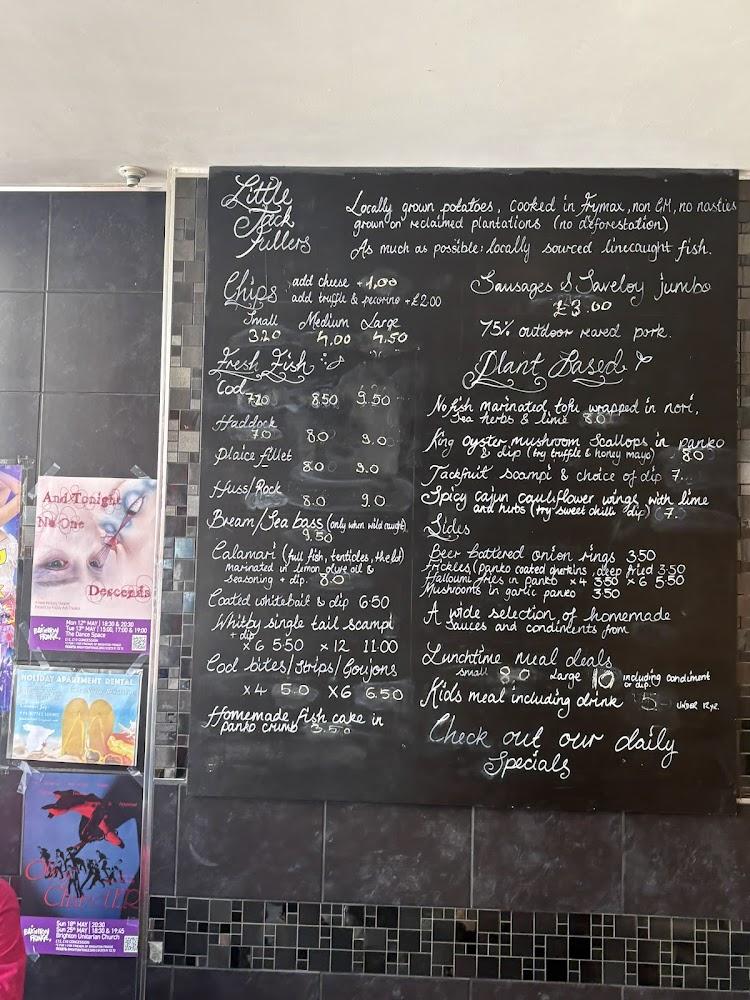 Little
Jack
Fullers
Locally grown potatoes, cooked in Frymax, non GM, no nasties
grown on reclaimed plantations (no deforestation)
As much as possible: locally sourced linecaught fish.
Chips add cheese +1.00
add truffle & pecorino +£2.00
Small Medium Large
3.20 4.00 4.50
Fresh Fish
Cod
7.20 8.50 9.50
Haddock
7.0 8.0 9.0
Plaice fillet
8.0 9.0
Huss/Rock
8.0 9.0
Bream/Sea bass (only when wild caught)
9.50
Calamari (full fish, tenticles, the lot)
marinated in lemon olive oil &
seasoning + dip. 8.0
Coated whitebait & dip 6.50
Whitby single tail scampi
+ dip
x 6 5.50 x 12 11.00
Cod bites/strips/Goujons
x 4 5.0 x 6 6.50
Homemade fish cake in
panko crumb 3.50
Sausages & Saveloy jumbo
£3.00
75% outdoor reared pork.
Plant Based
No fish marinated tofu wrapped in nori,
Sea herbs & lime 8.0
King oyster mushroom Scallops in panko
& dip (try truffle & honey mayo) 8.0
Jackfruit scampi & choice of dip 7.
Spicy cajun cauliflower wings with lime
and herbs (try sweet chilli dip) 7.
Sides
Beer battered onion rings 3.50
Frickles (panko coated gherkins, deep fried 3.50
Halloumi fries in panko x 4 3.50 x 6 5.50
Mushrooms in garlic panko 3.50
A wide selection of homemade
sauces and condiments from
Lunchtime meal deals
small 8.0 large 10 including condiment
or dip
Kids meal including drink 5
Check out our daily
Specials
And Tonight
No One
Descends
BRIGHTON
FRINGE
Mon 12th MAY | 18:30 & 20:30
Tue 13th MAY | 15:00, 17:00 & 19:00
The Dance Space
HOLIDAY APARTMENT RENTAL
BRIGHTON
FRINGE
Sun 18th MAY | 20:30
Sun 25th MAY | 18:30 & 19:45
Brighton Unitarian Church